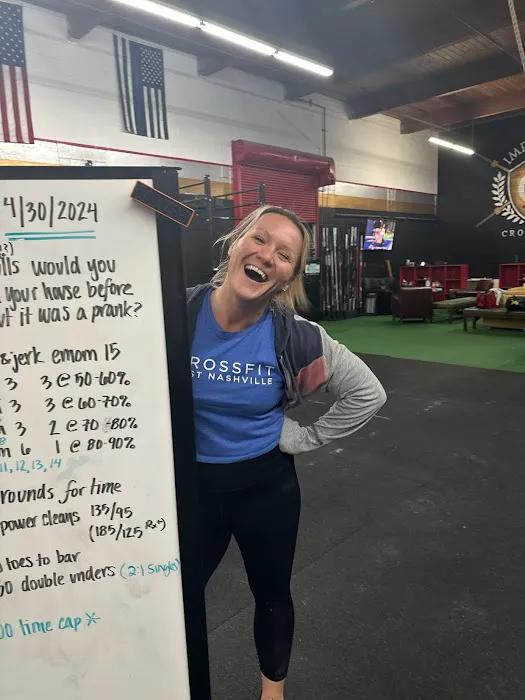 4/30/2024
would you
your house before
it was a prank?
&jerk emom 15
3 3 @ 50-60%
3 3 @ 60-70%
3 2 @ 70-80%
6 1 @ 80-90%
11, 12, 13, 14
rounds for time
power cleans 135/95
(185/125 Rx+)
toes to bar
50 double unders (2:1 singles)
time cap *
ROSSFIT
ST NASHVILLE
IMP
CRO